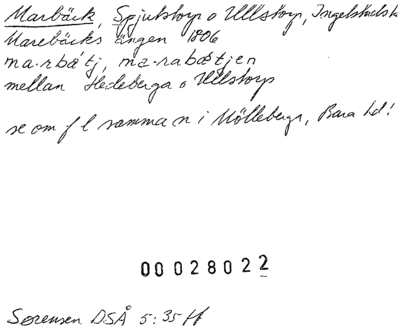 Marbäck, Spjutstorp o Ullstorp, Ingelstads h
Marebäcks ängen 1806
ma·rbá·tj, ma·rabá·tjen
mellan Hedeberga o Ullstorp
se om f l samma n i Mölleberga, Bara hd!
00028022
Sørensen DSÅ 5:35 ff